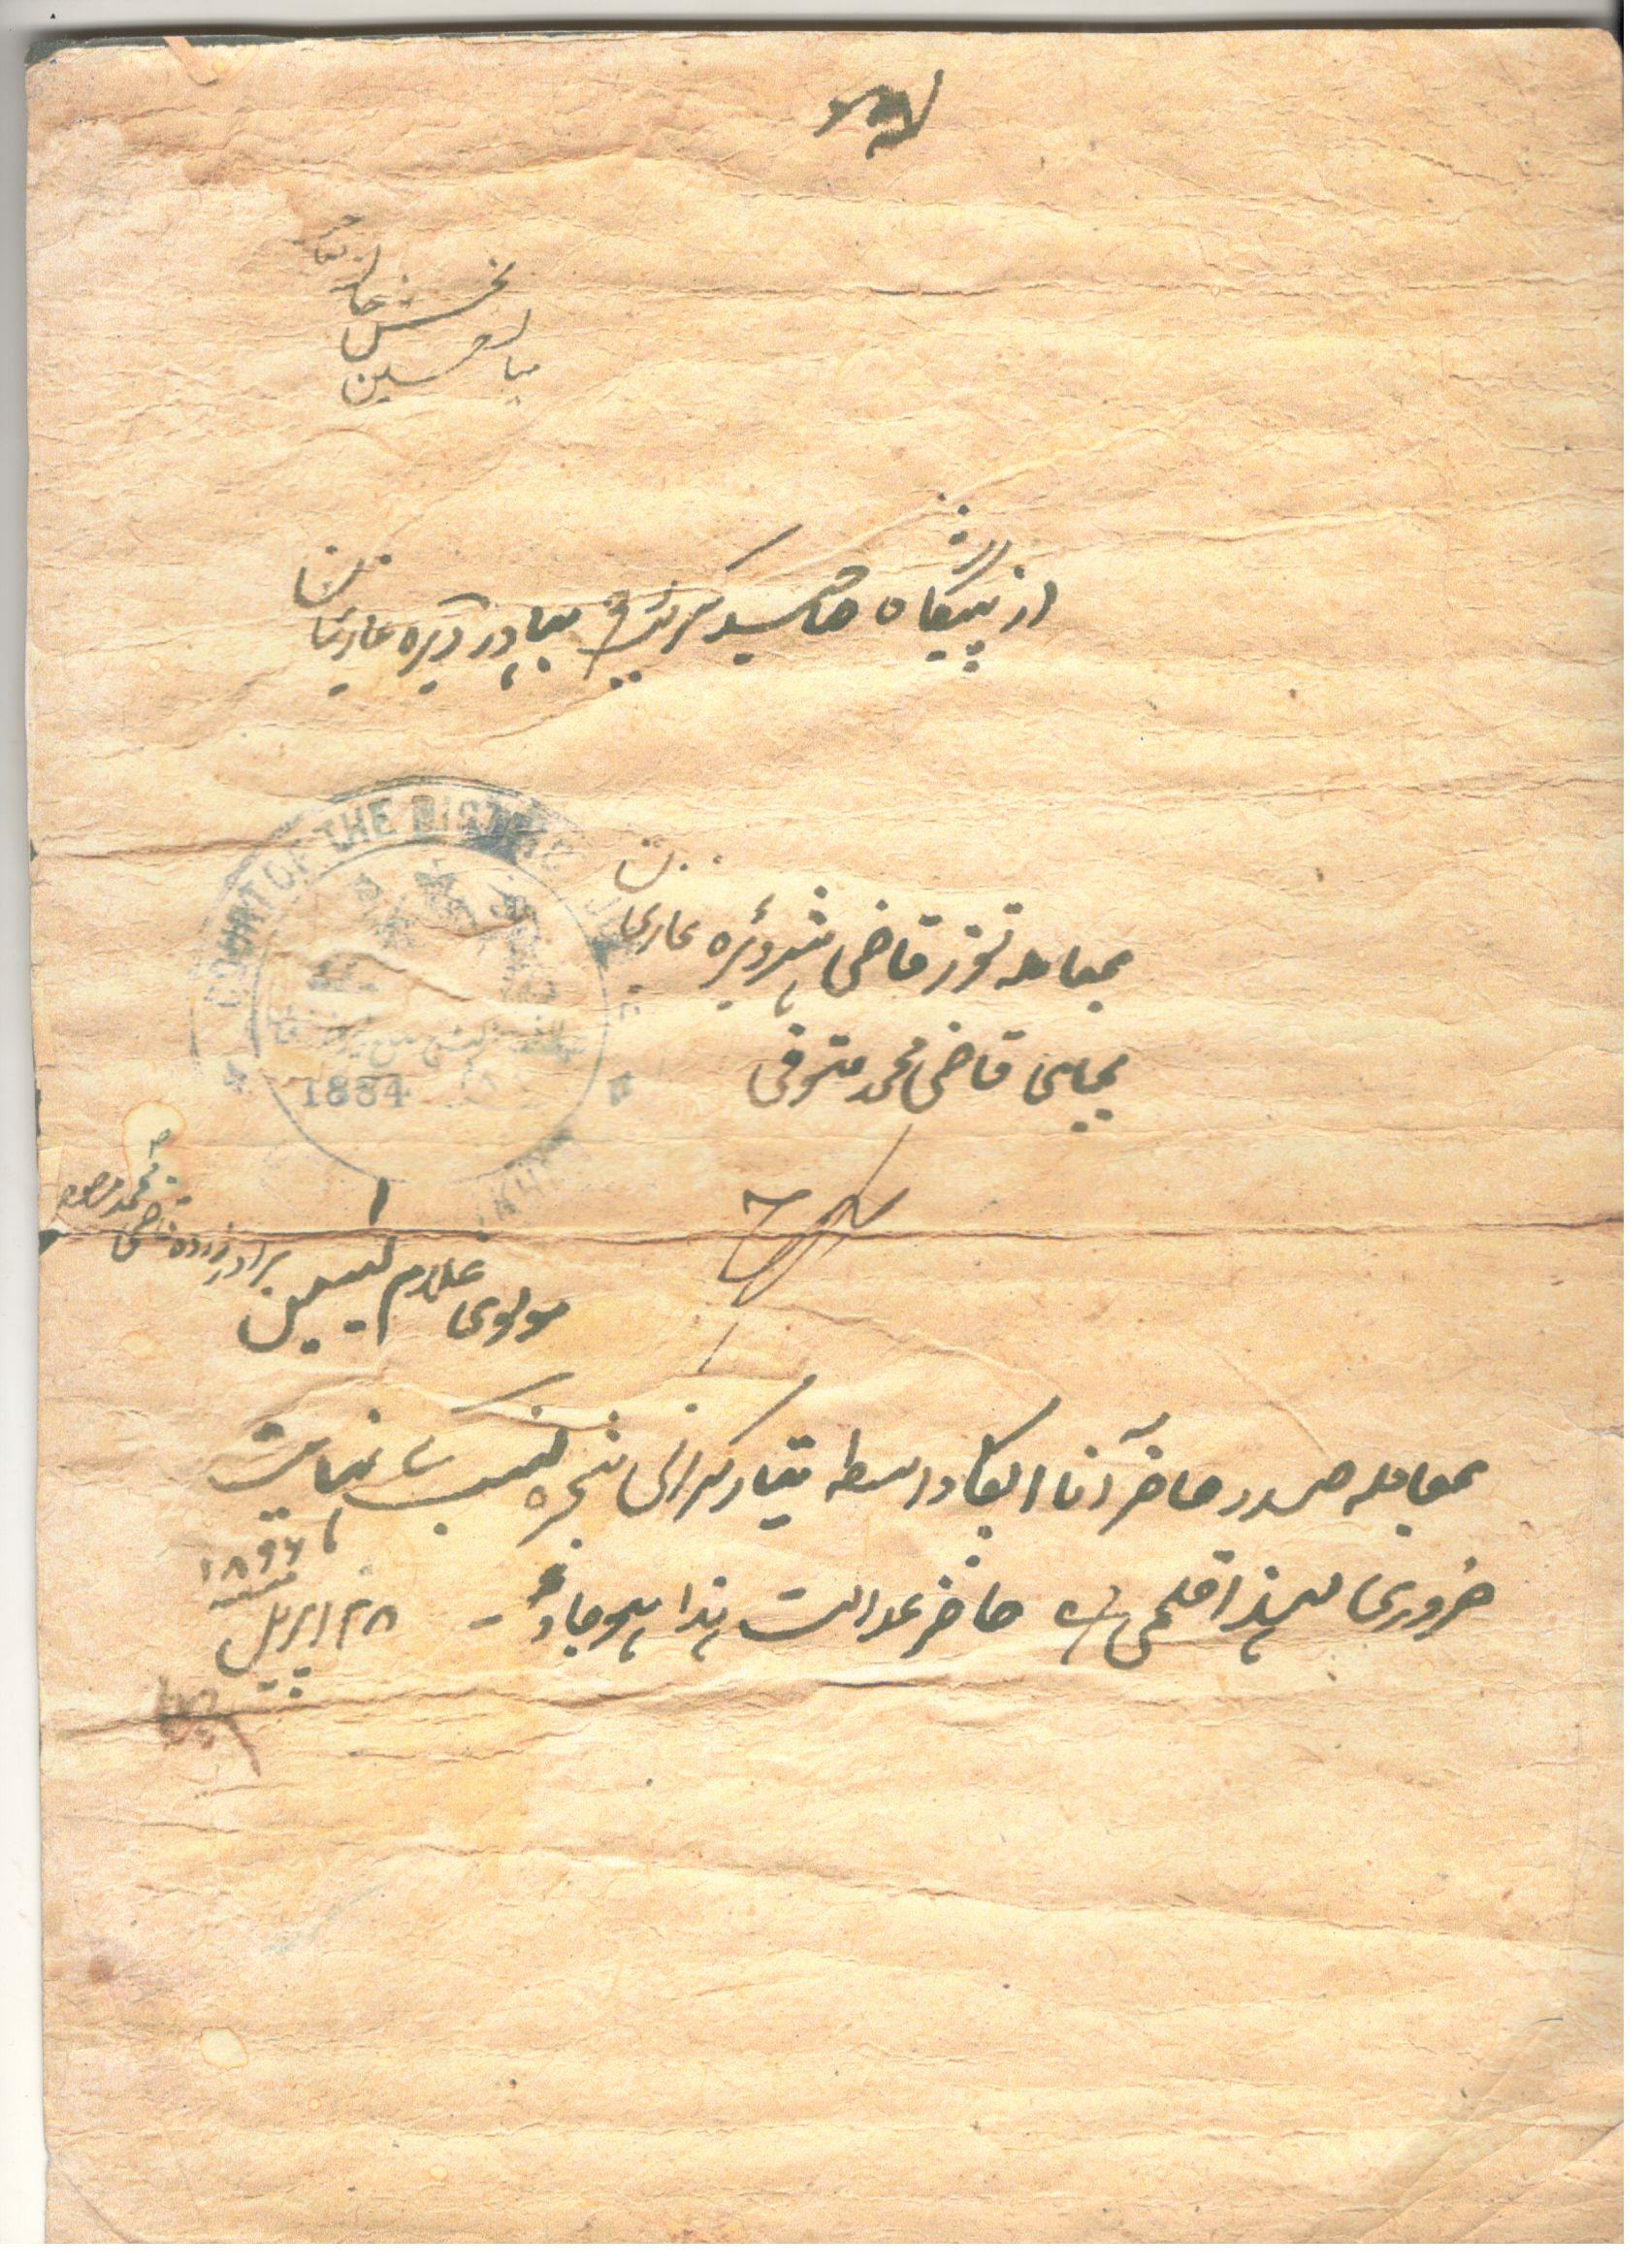 میاں حسین
بخش خان
از پیشگاه
بهادر ڈیرہ غازیخان
COURT OF THE DISTRICT
1884
بمعاملہ تقرر قاضی شہر ڈیرہ غازیخان
بجای قاضی محمد متوفی
مولوی غلام یسین
برادر زاده قاضی محمد
بمعاملہ صدر حاضر آنا آپکا واسطہ تیار کرانی شجرہ نسب کے نہایت
ضروری لہذا قلمی ہے حاضر عدالت ہذا ہو جاوے -
۲۸ اپریل